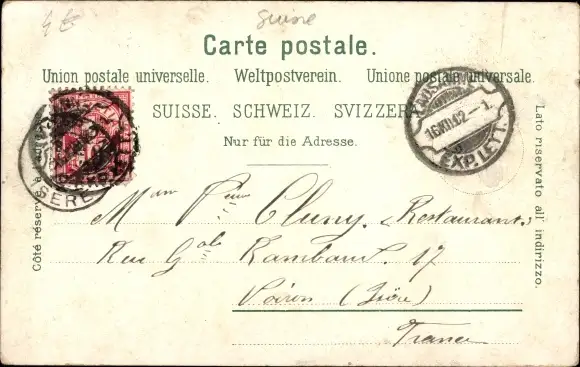 4 €
Suisse
Carte postale.
Union postale universelle. Weltpostverein. Unione postale universale.
SUISSE. SCHWEIZ. SVIZZERA
Nur für die Adresse.
Côté réservé à
Lato riservato all' indirizzo.
16.XII.02 – 1
EXP. LETT.
Cluny, Restaurant,
Rue Gal Rambaud. 17
Voiron (Isère)
France